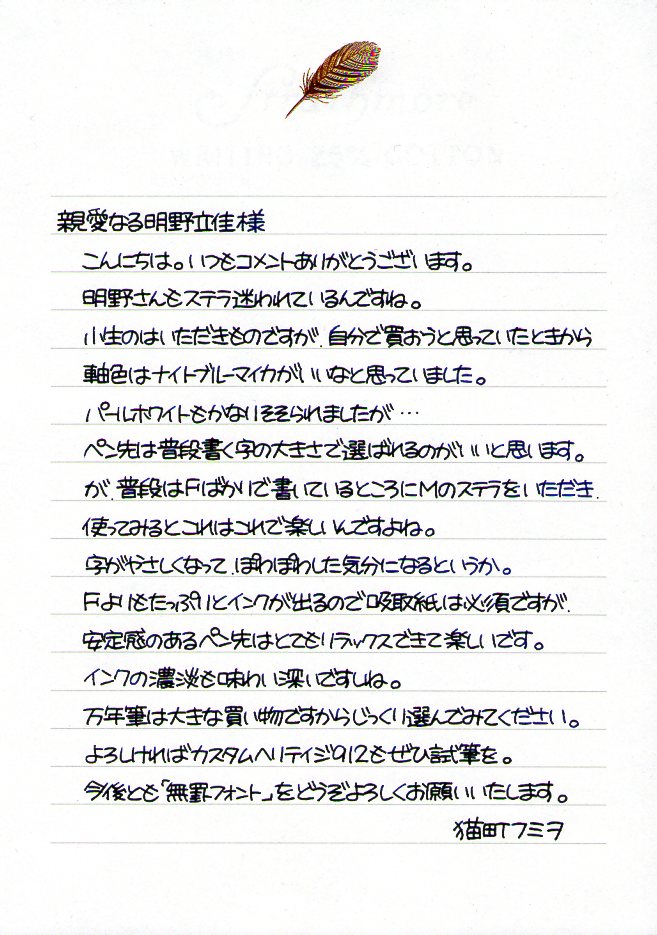 親愛なる明野立佳様
こんにちは。いつもコメントありがとうございます。
明野さんもステラ迷われているんですね。
小生のはいただきものですが、自分で買おうと思っていたときから
軸色はナイトブルーマイカがいいなと思っていました。
パールホワイトもかなりそそられましたが…
ペン先は普段書く字の大きさで選ばれるのがいいと思います。
が、普段はFばかりで書いているところにMのステラをいただき、
使ってみるとこれはこれで楽しいんですよね。
字がやさしくなって、ぽわぽわした気分になるというか。
Fよりもたっぷりとインクが出るので吸取紙は必須ですが、
安定感のあるペン先はとてもリラックスできて楽しいです。
インクの濃淡も味わい深いですしね。
万年筆は大きな買い物ですからじっくり選んでみてください。
よろしければカスタムヘリテイジ912もぜひ試筆を。
今後とも「無罫フォント」をどうぞよろしくお願いいたします。
猫町フミヲ